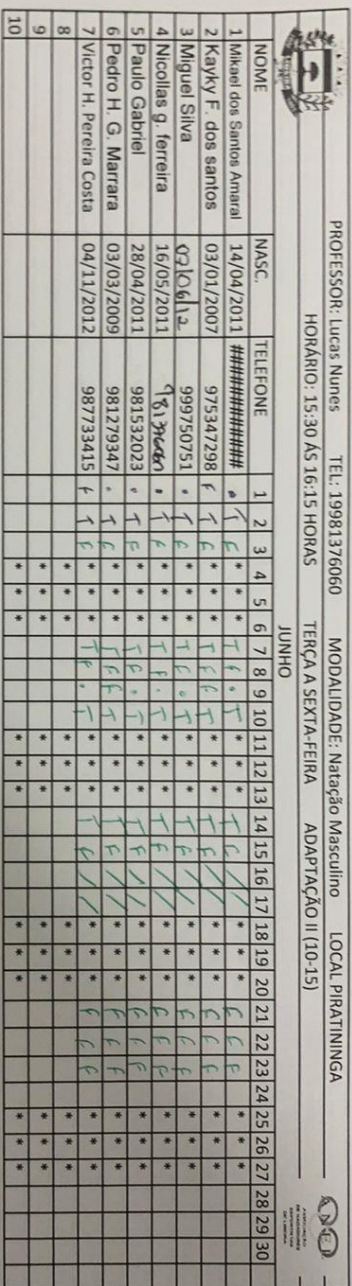 PROFESSOR: Lucas Nunes TEL: 19981376060 MODALIDADE: Natação Masculino LOCAL PIRATININGA
HORÁRIO: 15:30 ÁS 16:15 HORAS TERÇA A SEXTA-FEIRA ADAPTAÇÃO II (10-15)
JUNHO
NOME NASC. TELEFONE 1 2 3 4 5 6 7 8 9 10 11 12 13 14 15 16 17 18 19 20 21 22 23 24 25 26 27 28 29 30
1 Mikael dos Santos Amaral 14/04/2011 ########### • T F * * * T F • T * * * T F / / * * * F F F * * *
2 Kayky F. dos santos 03/01/2007 975347298 F T F * * * T F F T * * * T F / / * * * F F F * * *
3 Miguel Silva 07/06/12 999750751 • T F * * * T F • T * * * T F / / * * * F F F * * *
4 Nicollas g. ferreira 16/05/2011 • T F * * * T F • T * * * T F / / * * * F F F * * *
5 Paulo Gabriel 28/04/2011 981532023 • T F * * * T F • T * * * T F / / * * * F F F * * *
6 Pedro H. G. Marrara 03/03/2009 981279347 • T F * * * T F F T * * * T F / / * * * F F F * * *
7 Victor H. Pereira Costa 04/11/2012 987733415 F T F * * * T F • T * * * T F / / * * * F F F * * *
8 * * * * * * * * * * * *
9 * * * * * * * * * * * *
10 * * * * * * * * * * * *